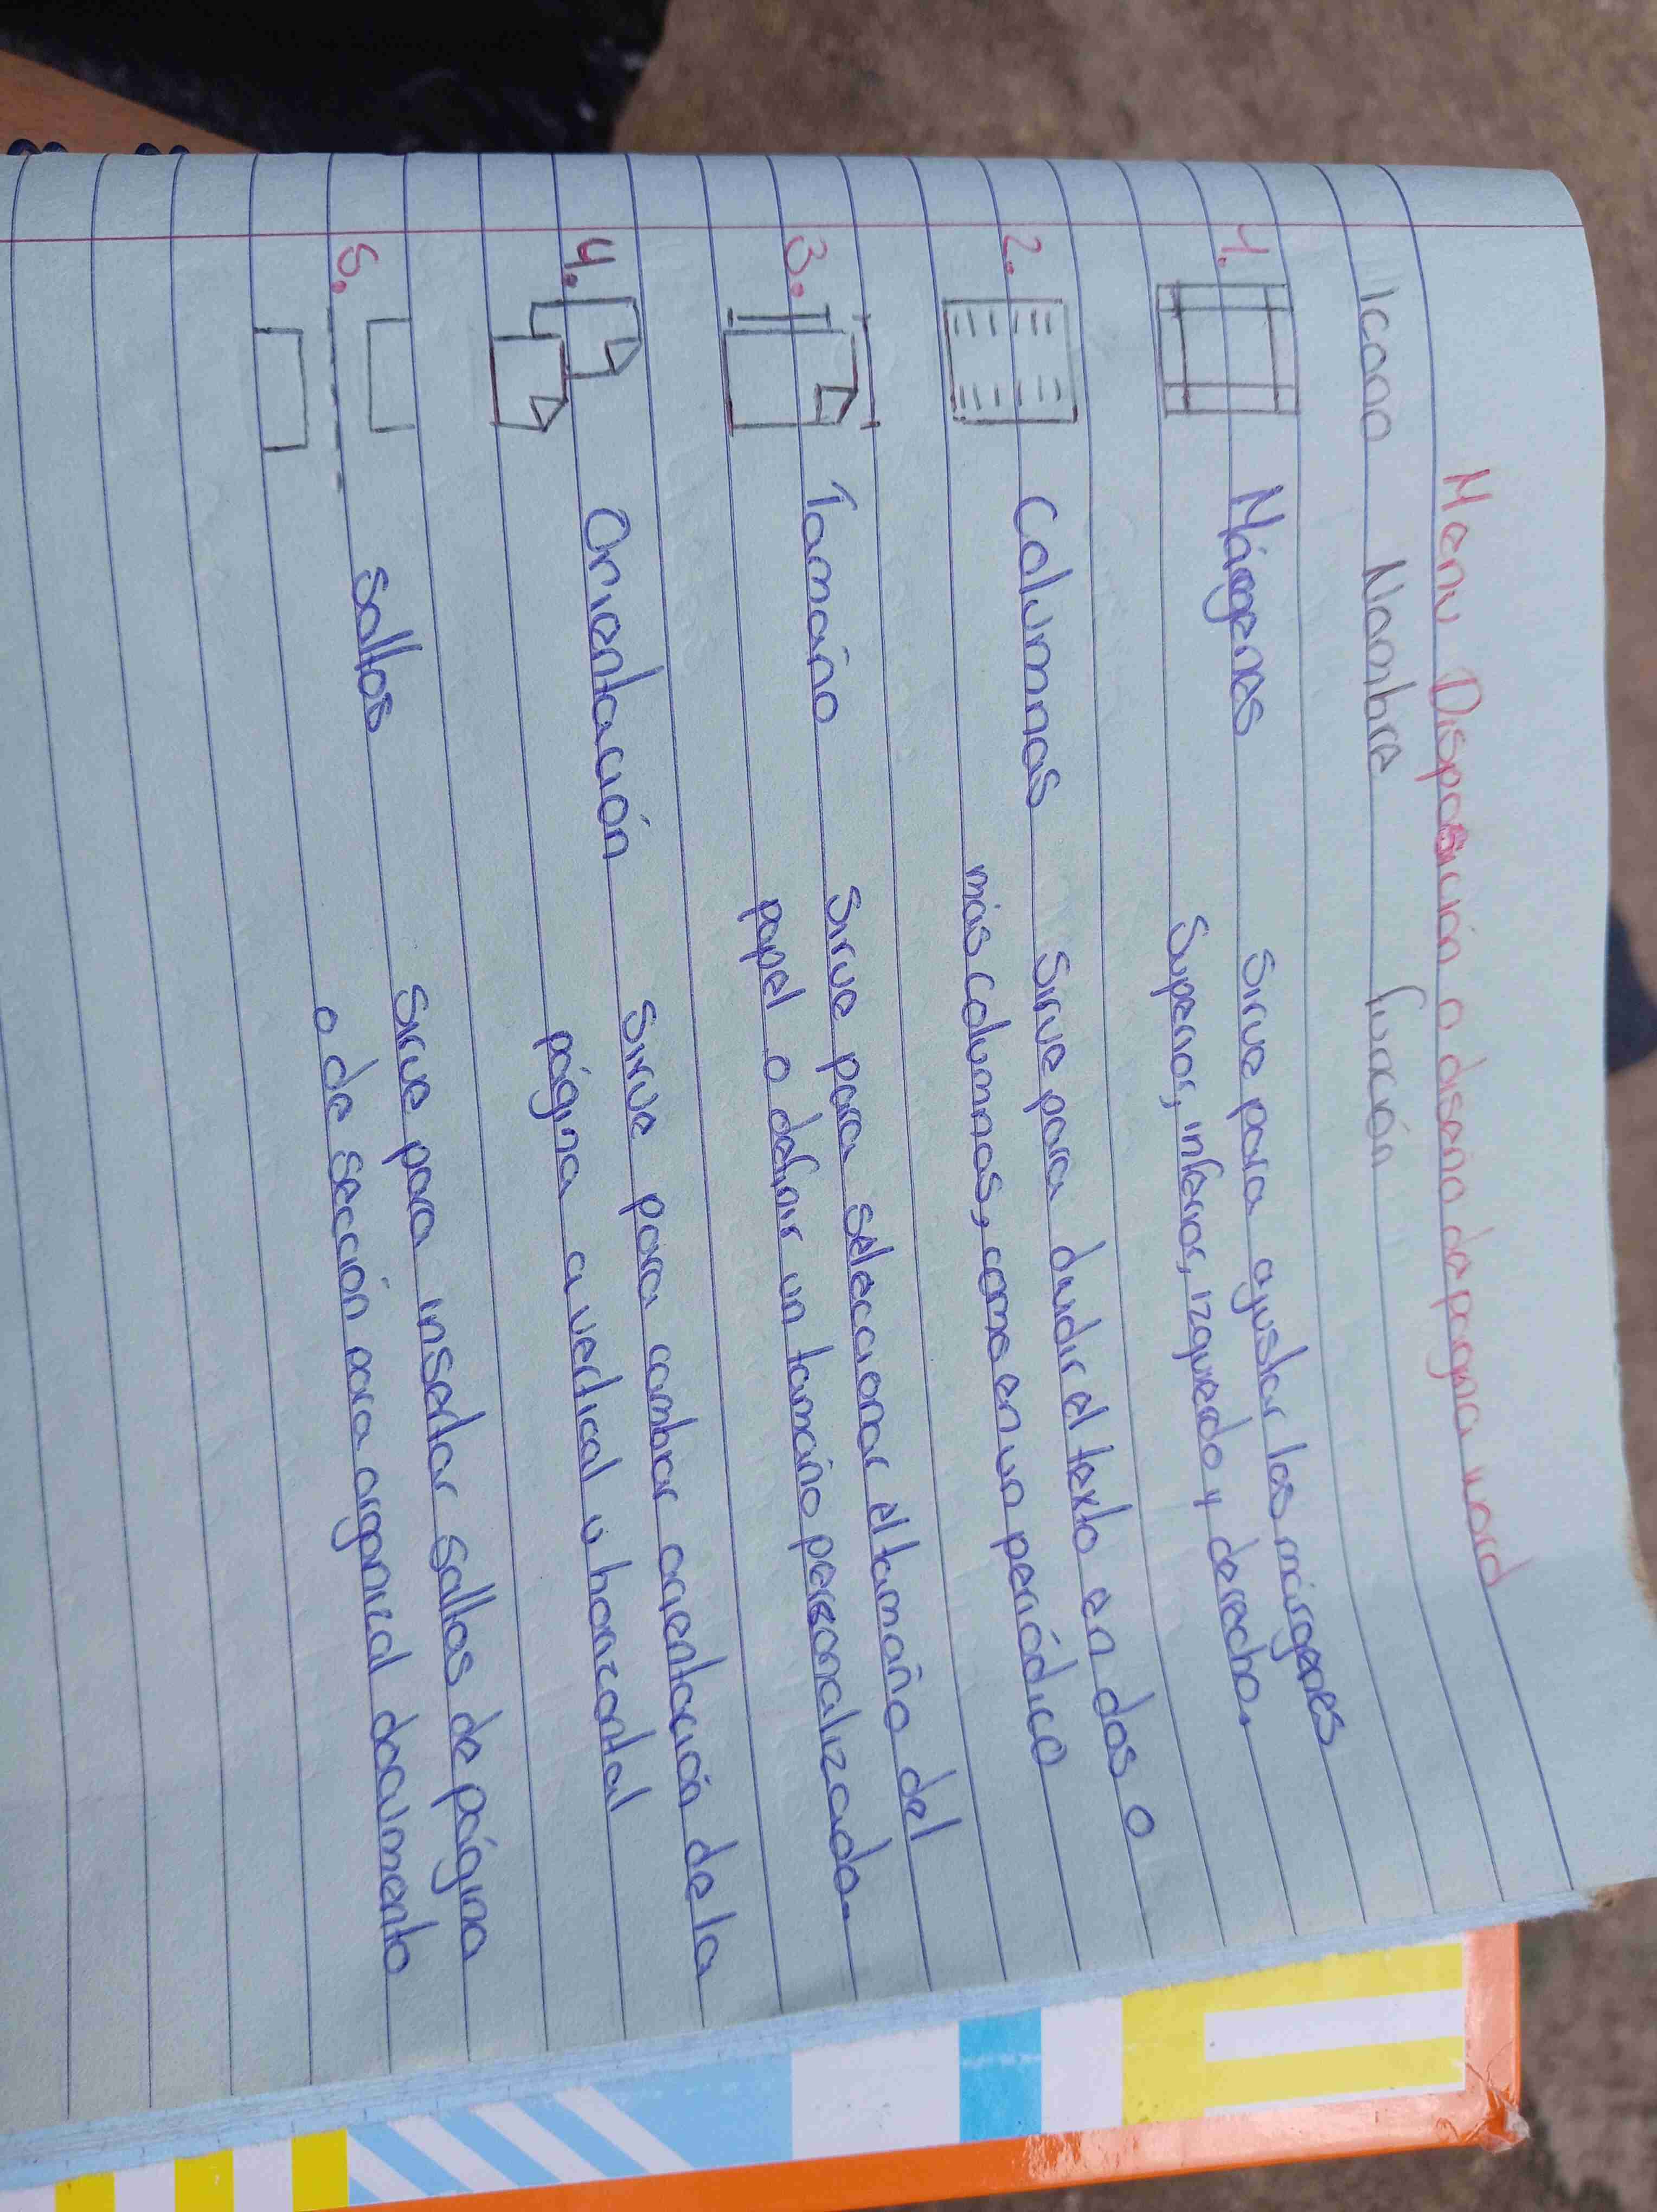 Menu Disposición o diseño de pagina word
Icono Nombre función
1. Márgenes Sirve para ajustar los márgenes
Superior, inferior, izquierdo y derecho.
2. Columnas Sirve para dividir el texto en dos o
más columnas, como en un periódico
3. Tamaño Sirve para seleccionar el tamaño del
papel o definir un tamaño personalizado.
4. Orientación Sirve para cambiar orientación de la
página a vertical u horizontal
5. Saltos Sirve para insertar saltos de página
o de sección para organizal documento